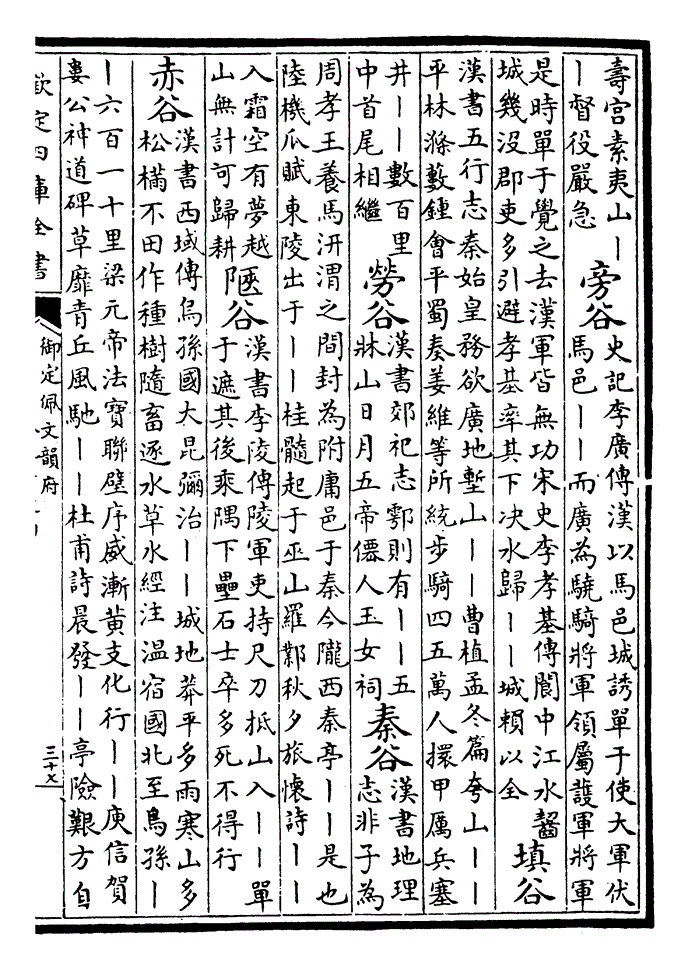 壽宮素夷山丨
丨督役嚴急
旁谷
史記李廣傳漢以馬邑城誘單于使大軍伏
馬邑丨丨而廣為驍騎將軍領屬護軍將軍
是時單于覺之去漢軍皆無功宋史李孝基傳閬中江水齧
城幾没郡吏多引避孝基率其下决水歸丨丨城賴以全
填谷
漢書五行志秦始皇務欲廣地塹山丨丨曹植孟冬篇夸山丨丨
平林滌藪鍾會平蜀奏姜維等所統步騎四五萬人擐甲厲兵塞
井丨丨數百里
中首尾相繼
勞谷
漢書郊祀志鄠則有丨丨五
牀山日月五帝僊人玉女祠
秦谷
漢書地理
志非子為
周孝王養馬汧渭之間封為附庸邑于秦今隴西秦亭丨丨是也
陸機瓜賦東陵出于丨丨桂髓起于巫山羅鄴秋夕旅懷詩丨丨
入霜空有夢越
山無計可歸耕
陿谷
漢書李陵傳陵軍吏持尺刀抵山入丨丨單
于遮其後乘隅下壘石士卒多死不得行
赤谷
漢書西域傳烏孫國大昆彌治丨丨城地莽平多雨寒山多
松樠不田作種樹隨畜逐水草水經注温宿國北至烏孫丨
丨六百一十里梁元帝法寶聯璧序威漸黄支化行丨丨庾信賀
婁公神道碑草靡青丘風馳丨丨杜甫詩晨發丨丨亭險艱方自
欽定四庫全書
御定佩文韻府
三十七